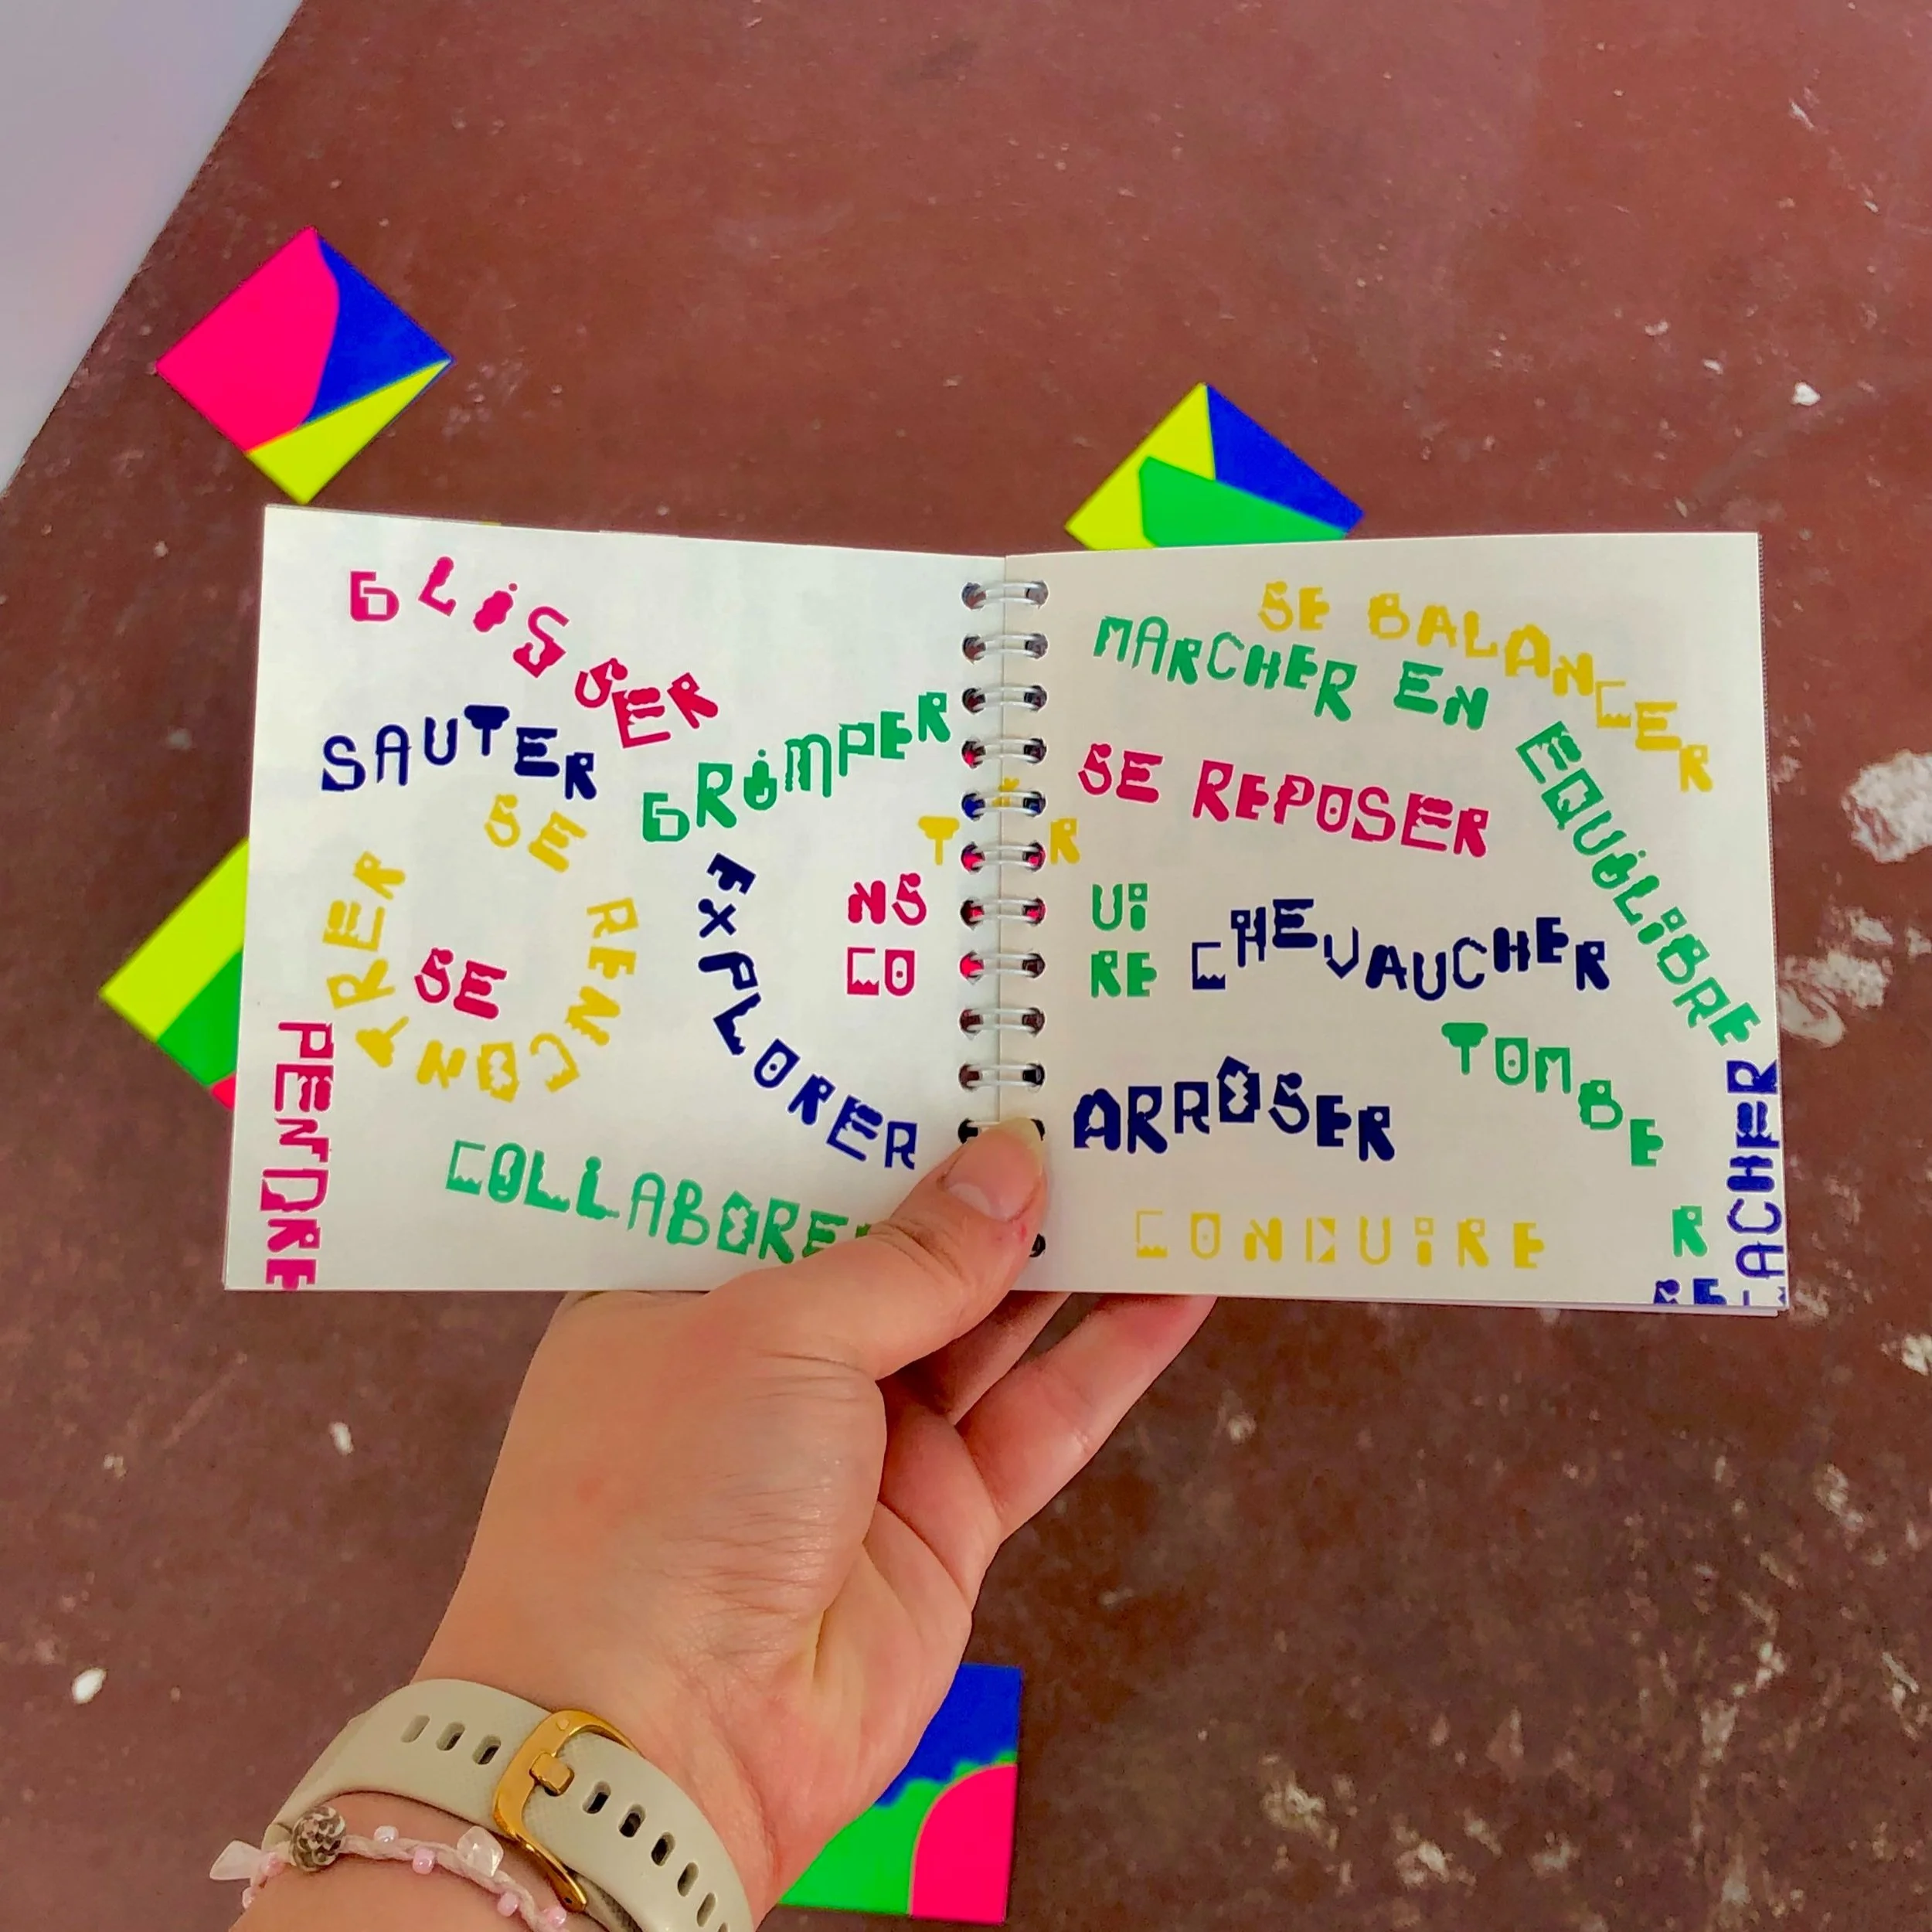 GLISSER
SAUTER
GRIMPER
SE RENCONTRER
SE PENDRE
EXPLORER
NS
CO
COLLABORER
SE BALANCER
MARCHER EN EQUILIBRE
SE REPOSER
UI
RE
CHEVAUCHER
TOMBER
ARROSER
CONDUIRE
SE CACHER